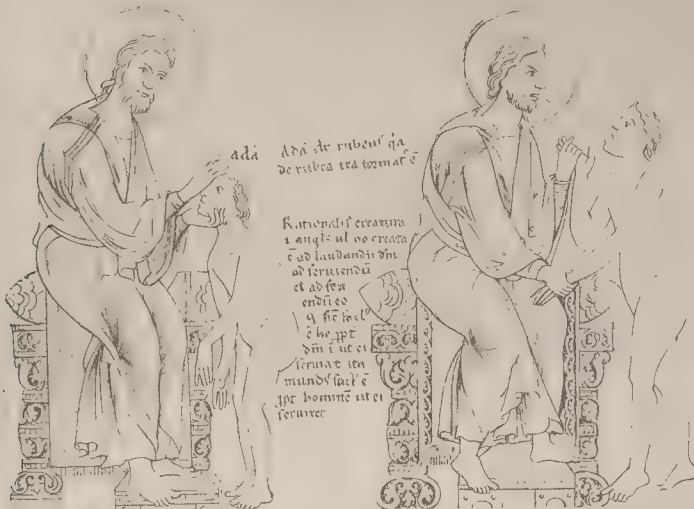 adā
Adā dr rubeus q̄a
de rubea tra format' ē
Rationalis creatura
i angl's ul' ho creata
ē ad laudandū dm̄
ad seruiendū
et ad
endū eo
ē ho ppt
dm̄ i ut ei
seruiat ita
mund' ē
ppt hominē ut ei
seruiret